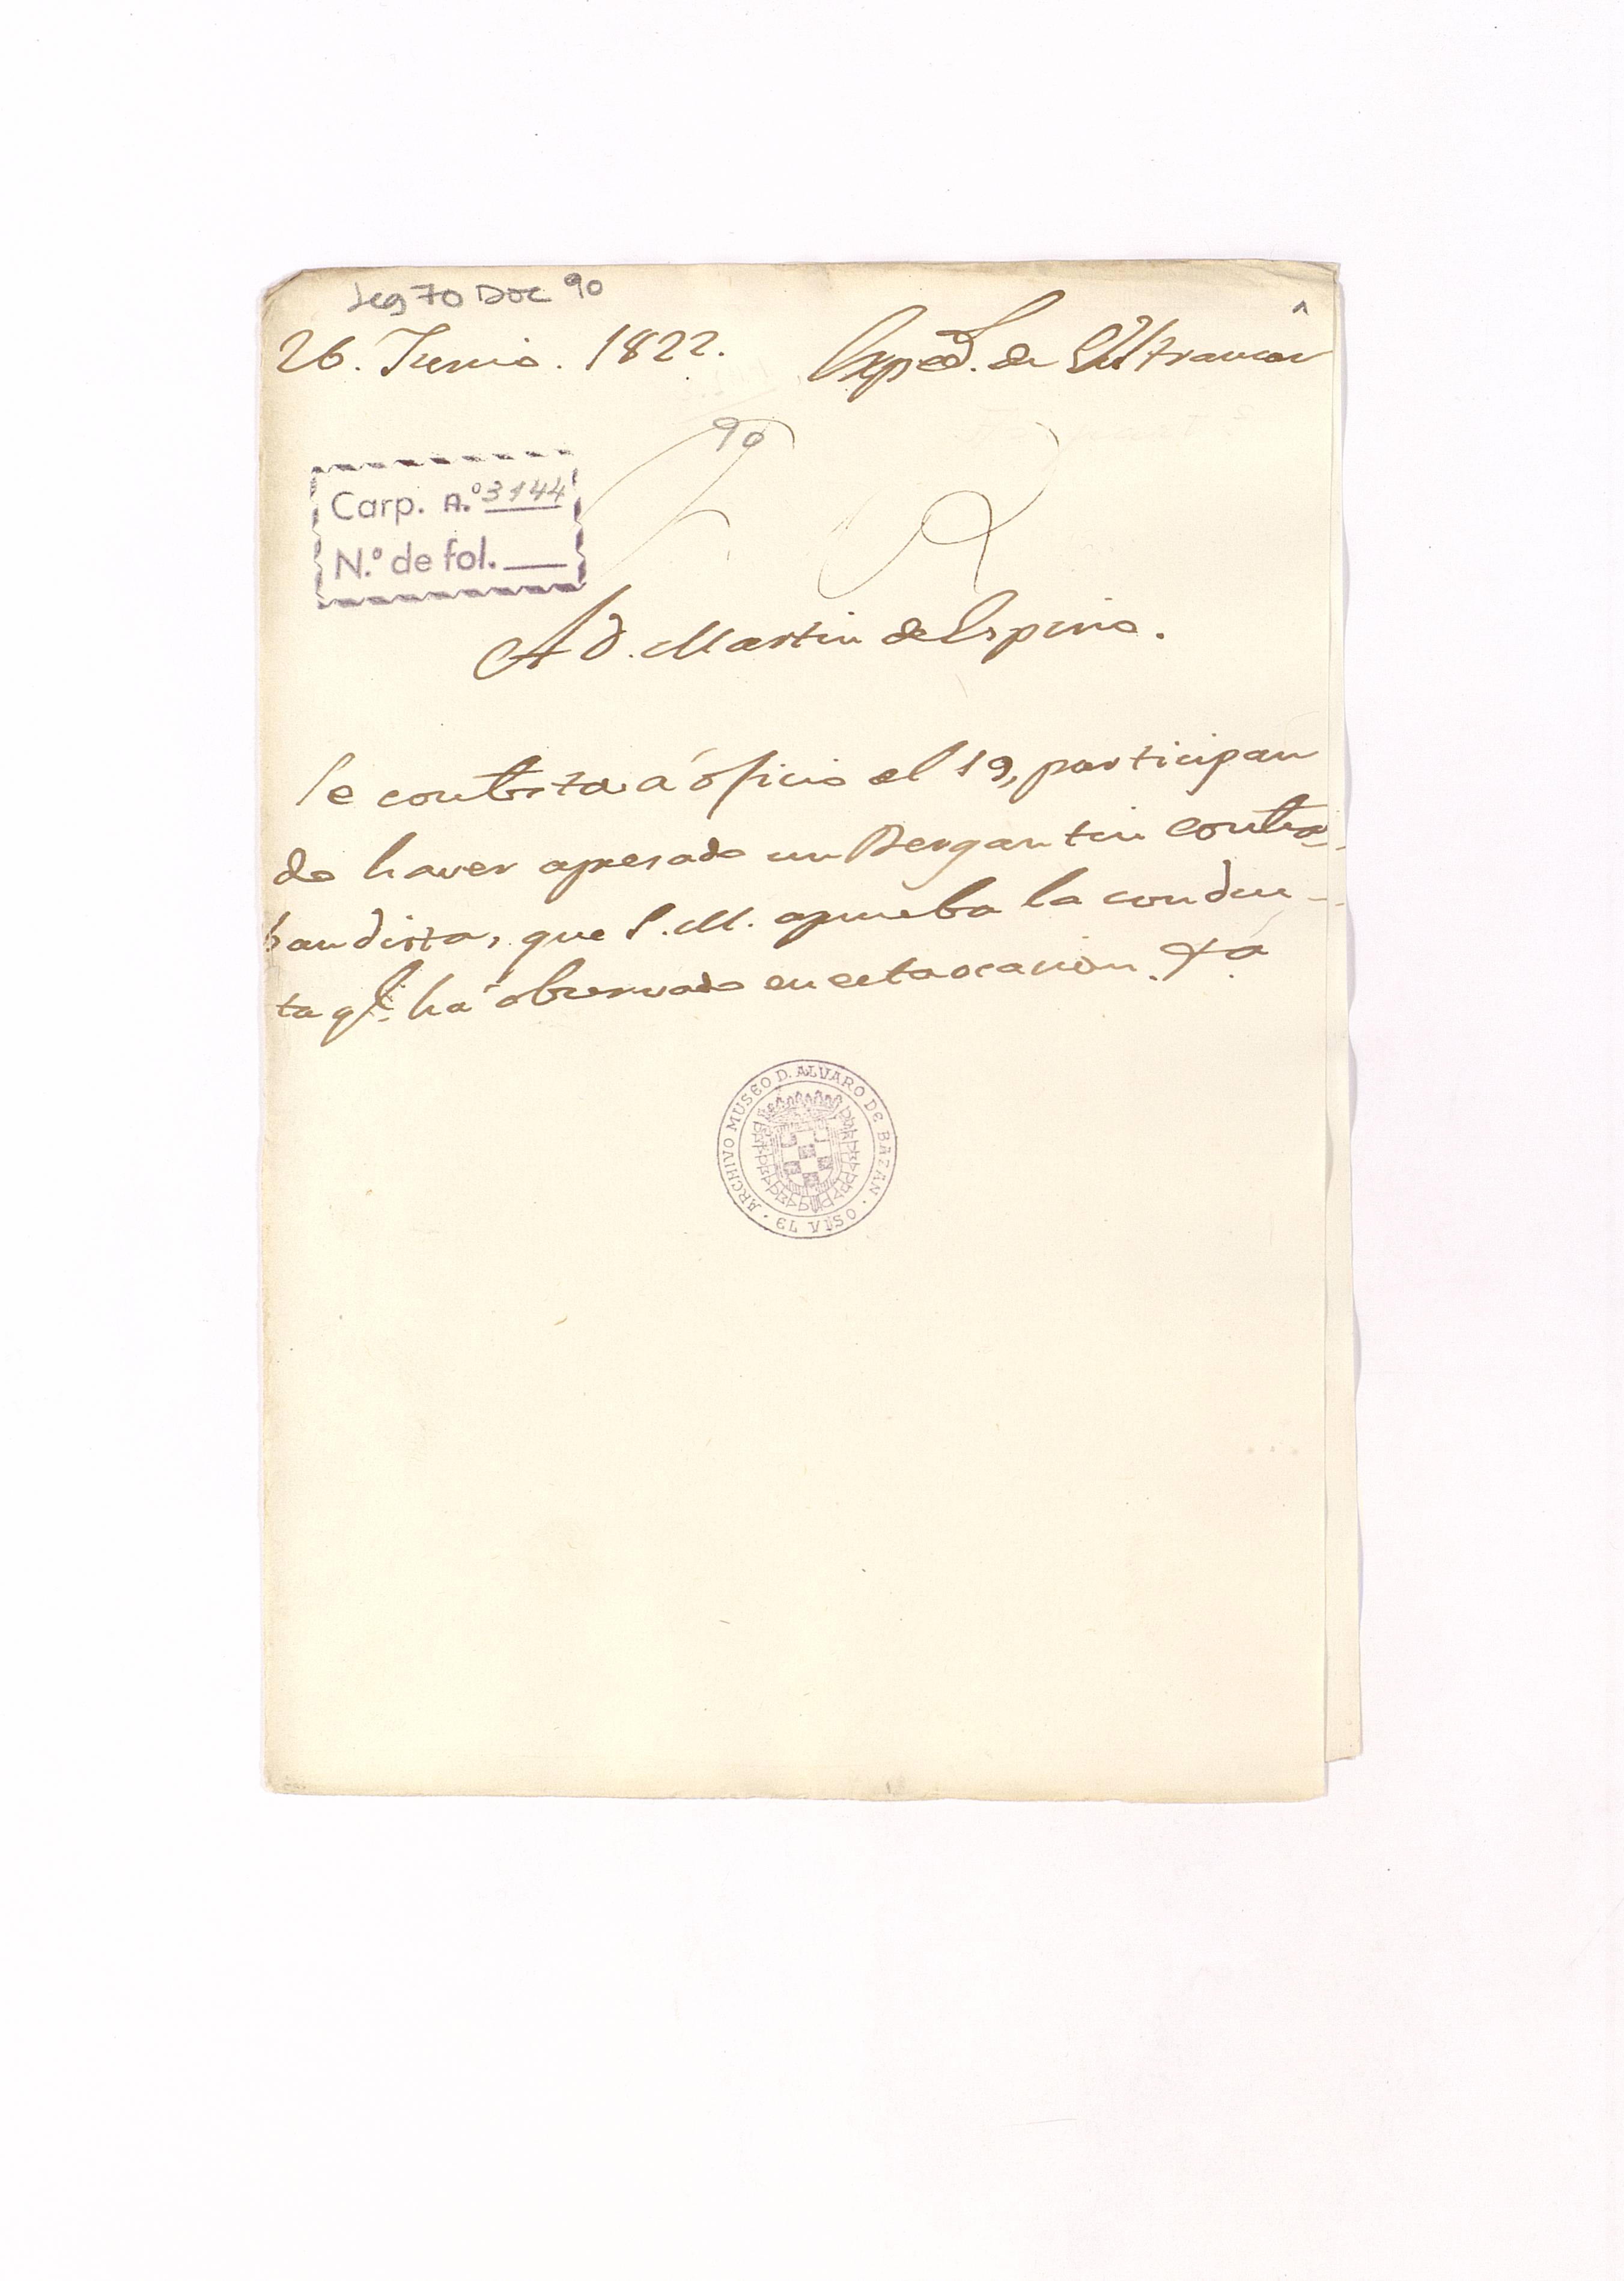 Leg 70 Doc 90
26. Junio. 1822. Exped. de Ultramar
90
Carp. n.º 3144
N.º de fol.
A D. Martin de Espino.
Se contesta á oficio el 19, participan
do haver apresado un Bergantin contra
bandista, que S. M. aprueba la conduc
ta q.e há observado en esta ocacion.
ARCHIVO MUSEO D. ALVARO DE BAZAN · EL VISO ·